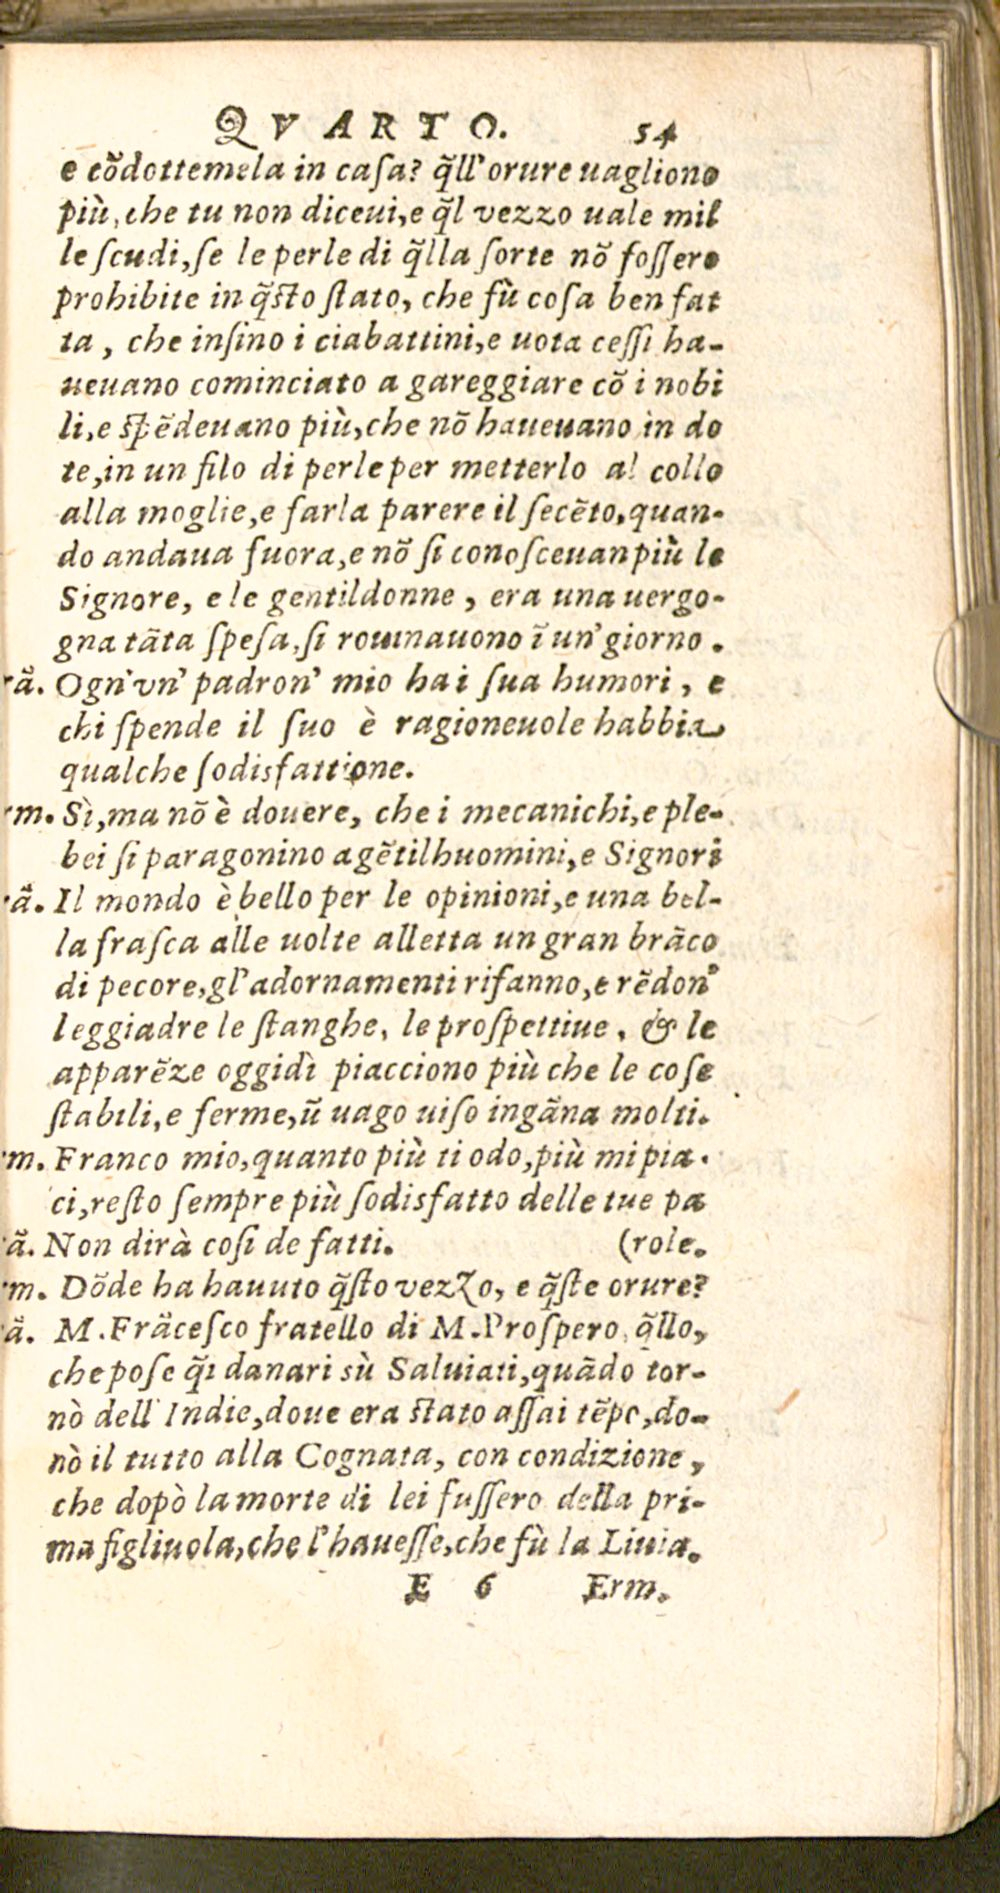 QVARTO. 54
e cõdottemela in caſa? q̃ll'orure uagliono
più, che tu non diceui, e q̃l vezzo uale mil
le ſcudi, ſe le perle di q̃lla ſorte nõ foſſero
prohibite in q̃ſto ſtato, che fù coſa ben fat
ta, che inſino i ciabattini, e uota ceſſi ha-
ueuano cominciato a gareggiare cõ i nobi
li, e ſpẽdeuano più, che nõ haueuano in do
te, in un filo di perle per metterlo al collo
alla moglie, e farla parere il ſecẽto, quan-
do andaua fuora, e nõ ſi conoſceuan più le
Signore, e le gentildonne, era una uergo-
gna tãta ſpeſa, ſi rouinauono ĩ un' giorno.
rã. Ogn'vn' padron' mio ha i ſua humori, e
chi ſpende il ſuo è ragioneuole habbia
qualche ſodisfattione.
rm. Sì, ma nõ è douere, che i mecanichi, e ple-
bei ſi paragonino a gẽtilhuomini, e Signori
rã. Il mondo è bello per le opinioni, e una bel-
la fraſca alle uolte alletta un gran brãco
di pecore, gl'adornamenti rifanno, e rẽdon'
leggiadre le ſtanghe, le proſpettiue, & le
apparẽze oggidì piacciono più che le coſe
ſtabili, e ferme, ũ uago uiſo ingãna molti.
rm. Franco mio, quanto più ti odo, più mi pia-
ci, reſto ſempre più ſodisfatto delle tue pa
rã. Non dirà coſi de fatti. (role.
rm. Dõde ha hauuto q̃ſto vezzo, e q̃ſte orure?
rã. M. Frãceſco fratello di M. Proſpero, q̃llo,
che poſe q̃i danari sù Saluiati, quãdo tor-
nò dell'Indie, doue era ſtato aſſai tẽpo, do-
nò il tutto alla Cognata, con condizione,
che dopò la morte di lei fuſſero della pri-
ma figliuola, che l'haueſſe, che fù la Liuia.
E 6 Erm.